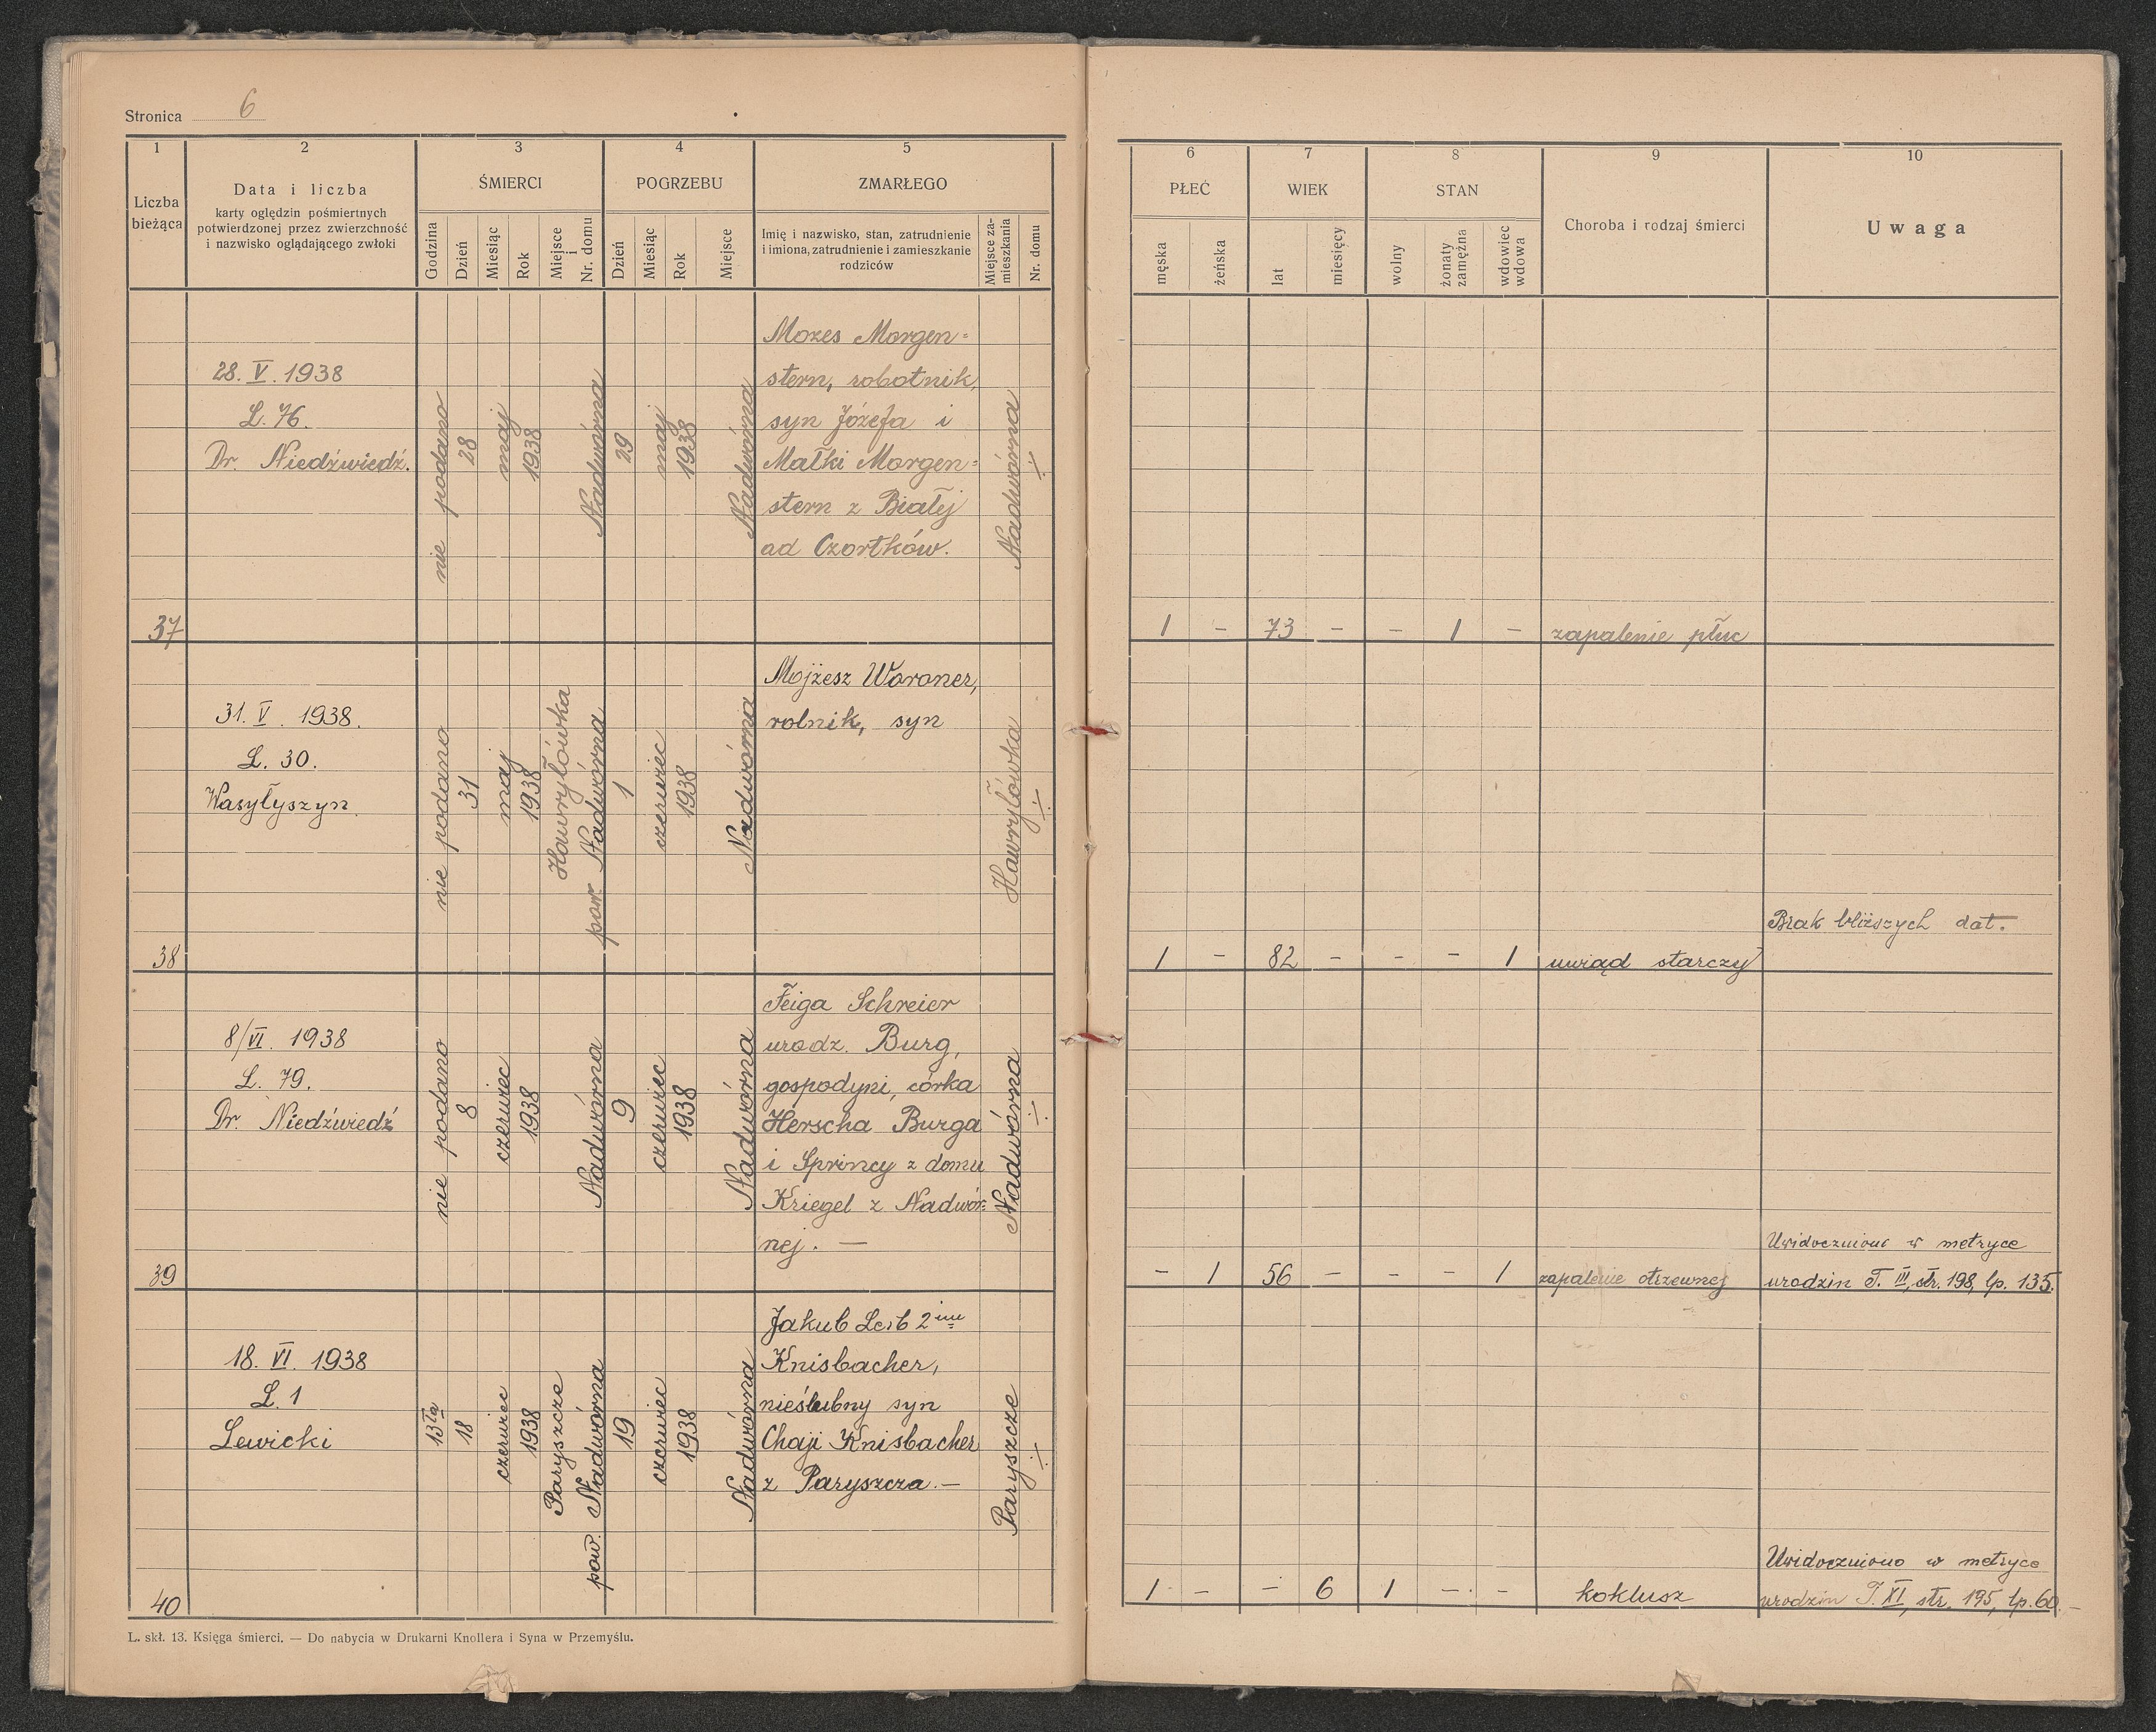 Stronica 6
1
2
3
4
5
Liczba bieżąca
Data i liczba
karty oględzin pośmiertnych
potwierdzonej przez zwierzchność
i nazwisko oglądającego zwłoki
ŚMIERCI
POGRZEBU
ZMARŁEGO
Godzina
Dzień
Miesiąc
Rok
Miejsce i Nr. domu
Dzień
Miesiąc
Rok
Miejsce
Imię i nazwisko, stan, zatrudnienie
i imiona, zatrudnienie i zamieszkanie
rodziców
Miejsce za-
mieszkania
Nr. domu
6
7
8
9
10
PŁEĆ
WIEK
STAN
Choroba i rodzaj śmierci
Uwaga
męska
żeńska
lat
miesięcy
wolny
żonaty
zamężna
wdowiec
wdowa
37
28. V. 1938
L. 76.
Dr. Niedźwiedź.
nie podano
28
maj
1938
Nadwórna
29
maj
1938
Nadwórna
Mozes Morgen=
stern, robotnik,
syn Józefa i
Małki Morgen=
stern z Białej
ad Czortków.
Nadwórna
÷
1 - 73 - - 1 - zapalenie płuc
38
31. V. 1938.
L. 30.
Wasyłyszyn.
nie podano
31
maj
1938
Hawryłówka
pow. Nadwórna
1
czerwiec
1938
Nadwórna
Mojżesz Woroner,
rolnik, syn
Hawryłówka
÷
1 - 82 - - - 1 uwiąd starczy
Brak bliższych dat.
39
8/VI. 1938
L. 79.
Dr. Niedźwiedź
nie podano
8
czerwiec
1938
Nadwórna
9
czerwiec
1938
Nadwórna
Feiga Schreier
urodz. Burg,
gospodyni, córka
Herscha Burga
i Sprincy z domu
Kriegel z Nadwór=
nej. —
Nadwórna
÷
- 1 56 - - - 1 zapalenie otrzewnej
Uwidoczniono w metryce
urodzin T. III, str. 198, lp. 135.
40
18. VI. 1938
L. 1
Lewicki
13ta
18
czerwiec
1938
Paryszcze
pow. Nadwórna
19
czerwiec
1938
Nadwórna
Jakub Leib 2im
Knisbacher,
nieślubny syn
Chaji Knisbacher
z Paryszcza. —
Paryszcze
÷
1 - - 6 1 - - koklusz
Uwidoczniono w metryce
urodzin T. XI, str. 195, lp. 60. —
L. skł. 13. Księga śmierci. — Do nabycia w Drukarni Knollera i Syna w Przemyślu.